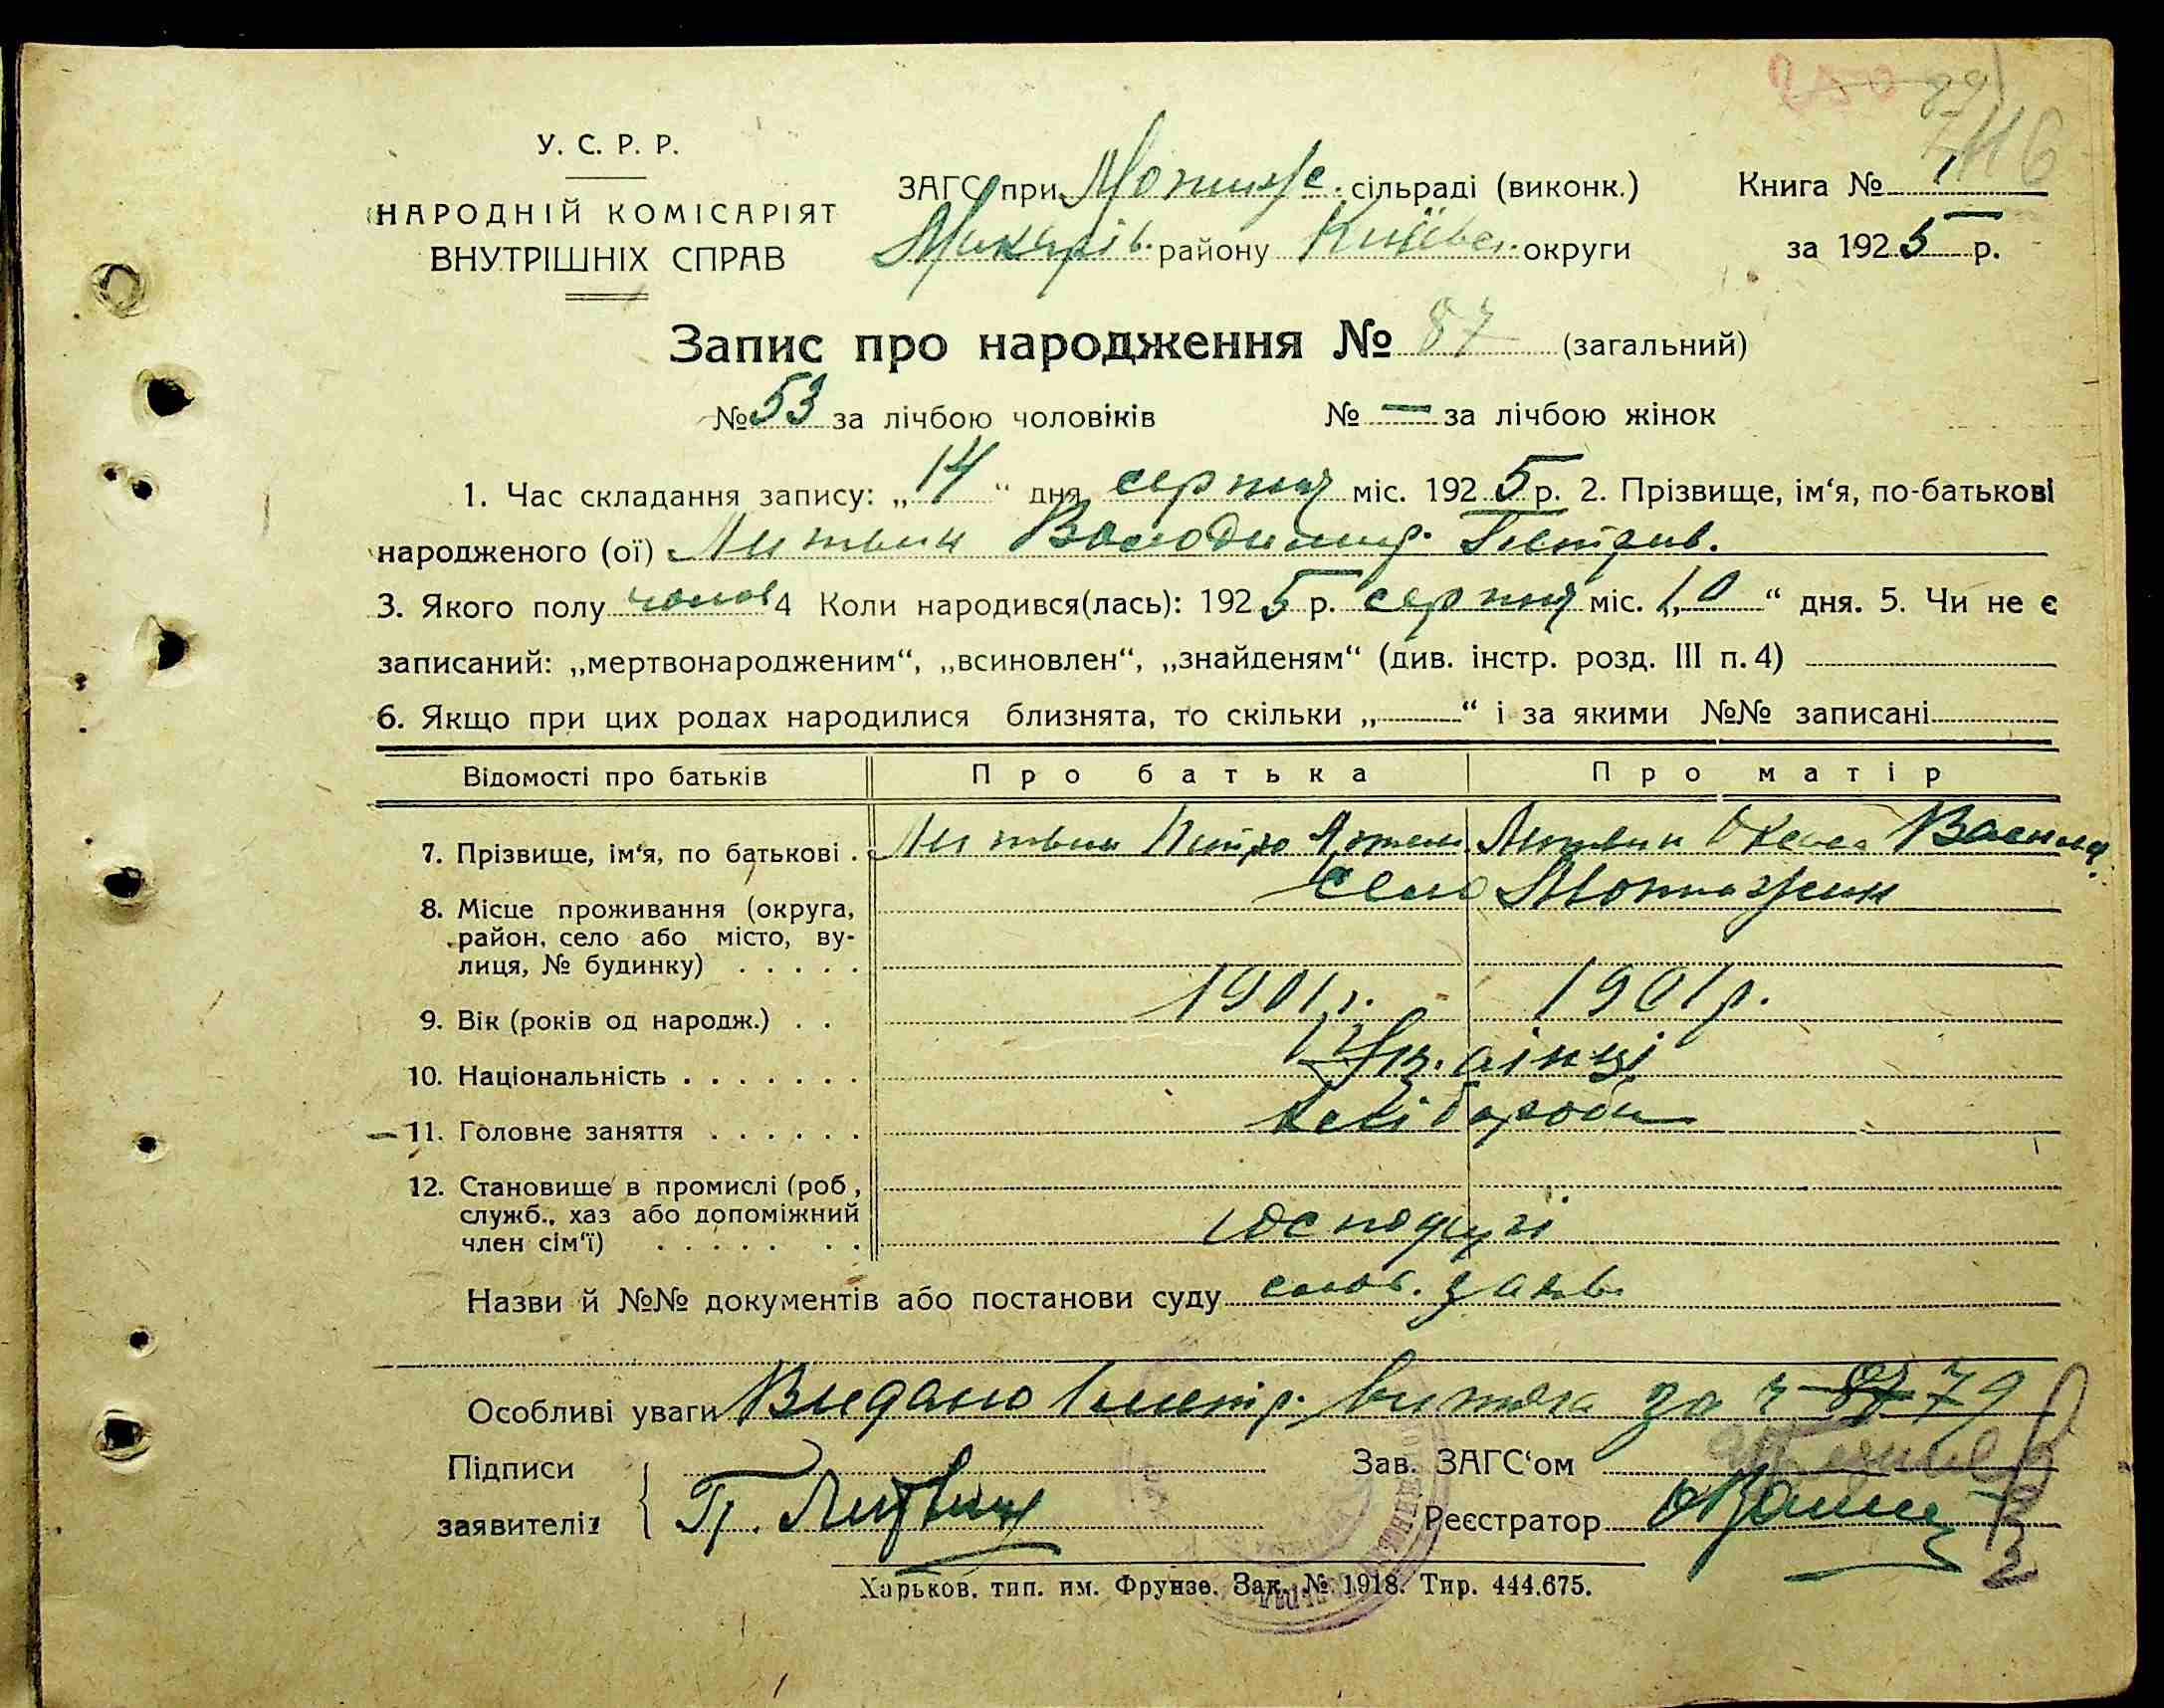 У. С. Р. Р.
НАРОДНІЙ КОМІСАРІЯТ
ВНУТРІШНІХ СПРАВ
ЗАГС при Мотиж. сільраді (виконк.)
Макарів. району Київськ. округи
Книга № 1
за 1925 р.
Запис про народження № 87 (загальний)
№ 53 за лічбою чоловіків № — за лічбою жінок
1. Час складання запису: „14“ дня серпня міс. 1925 р. 2. Прізвище, ім‘я, по-батькові
народженого (ої) Литвин Володимир Петров.
3. Якого полу чолов 4 Коли народився(лась): 1925 р. серпня міс. „10“ дня. 5. Чи не є
записаний: „мертвонародженим“, „всиновлен“, „знайденям“ (див. інстр. розд. III п. 4)
6. Якщо при цих родах народилися близнята, то скільки „ “ і за якими №№ записані
Відомості про батьків Про батька Про матір
7. Прізвище, ім‘я, по батькові . Литвин Петро Литвин Оксана Василів.
8. Місце проживання (округа, село Мотижин
район, село або місто, ву-
лиця, № будинку) . . . . .
9. Вік (років од народж.) . . 1901 р. 1901 р.
10. Національність . . . . . . . Українці
11. Головне заняття . . . . . . хлібороби
12. Становище в промислі (роб,
служб., хаз або допоміжний
член сім‘ї) . . . . . . . господарі
Назви й №№ документів або постанови суду слов. заява
Особливі уваги Видано витяг за ч 87 79
Підписи
заявителів П. Литвин
Зав. ЗАГС‘ом
Реєстратор
Харьков, тип. им. Фрунзе. Зак. № 1918. Тир. 444.675.